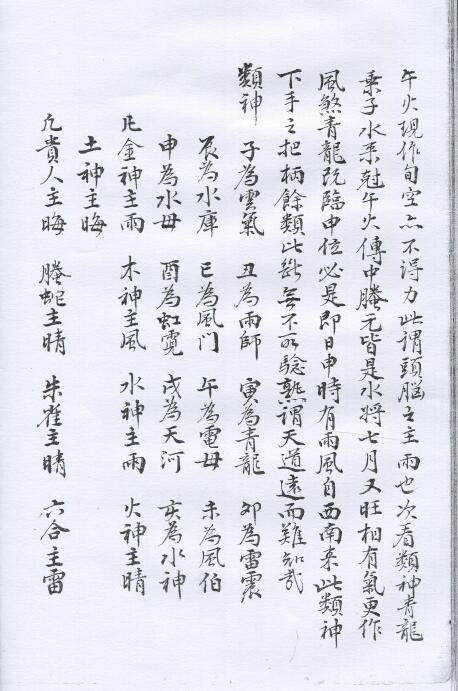 午火現作旬空亦不得力此謂頭腦之主雨也次看類神青龍
乗子水来尅午火傳中騰元皆是水將七月又旺相有氣更作
風煞青龍既臨申位必是即日申時有雨風自西南来此類神
下手之把柄餘類此斷無不驗孰謂天道遠而難知哉
類神 子為雲氣 丑為雨師 寅為青龍 卯為雷震
辰為水庫 巳為風门 午為電母 未為風伯
申為水母 酉為虹霓 戌為天河 亥為水神
凡金神主雨 木神主風 水神主雨 火神主晴
土神主晦
凡貴人主晦 騰蛇主晴 朱雀主晴 六合主雷